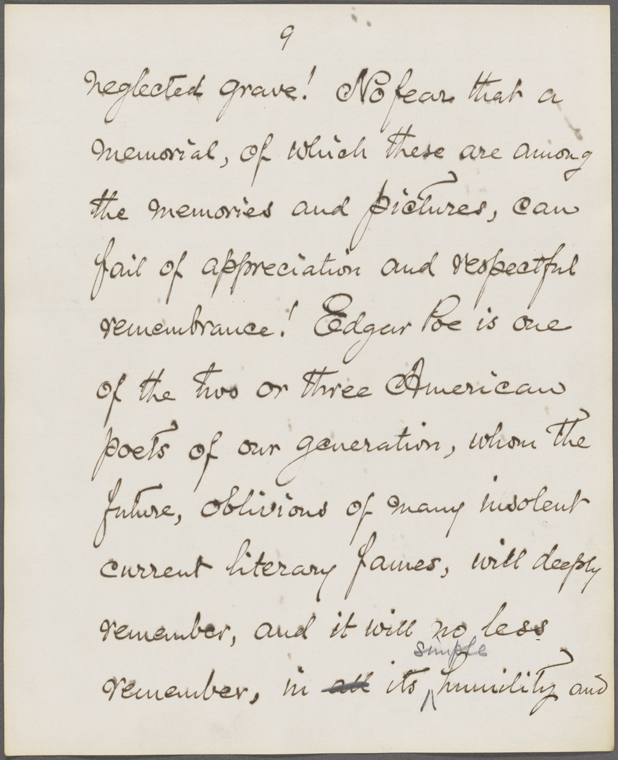 9
neglected grave! No fear that a
memorial, of which these are among
the memories and pictures, can
fail of appreciation and respectful
remembrance! Edgar Poe is one
of the two or three American
poets of our generation, whom the
future, oblivious of many insolent
current literary fames, will deeply
remember, and it will no less
simple
remember, in all its humility and